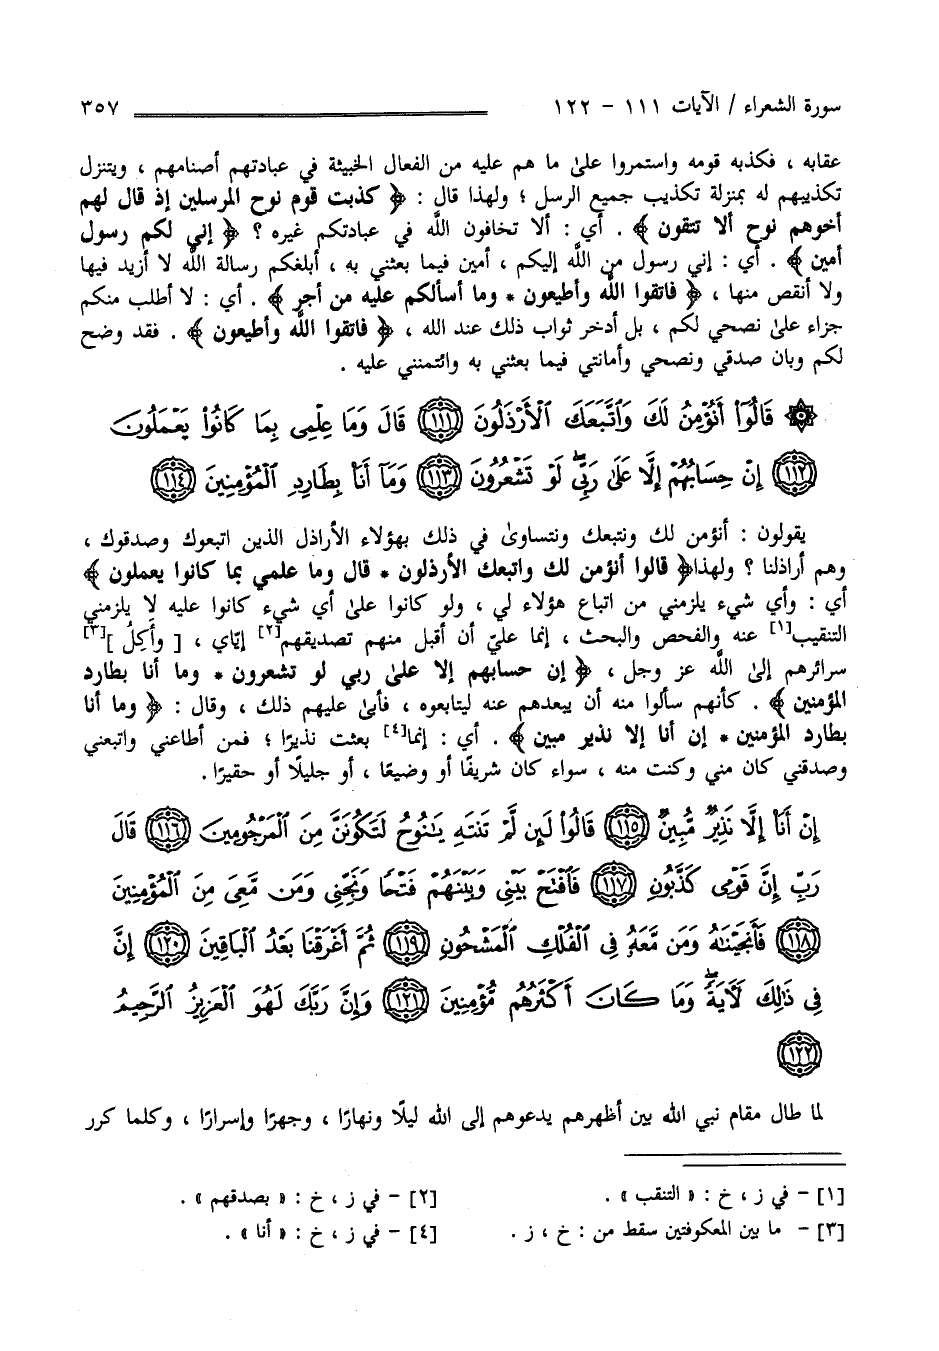 سورة الشعراء / الآيات ١١١ - ١٢٢ ٣٥٧
عقابه ، فكذبه قومه واستمروا علىٰ ما هم عليه من الفعال الخبيثة في عبادتهم أصنامهم ، ويتنزل
تكذيبهم له بمنزلة تكذيب جميع الرسل ؛ ولهذا قال : ﴿ كذبت قوم نوح المرسلين إذ قال لهم
أخوهم نوح ألا تتقون ﴾ . أي : ألا تخافون اللَّه في عبادتكم غيره ؟ ﴿ إني لكم رسول
أمين ﴾ . أي : إني رسول من اللَّه إليكم ، أمين فيما بعثني به ، أبلغكم رسالة اللَّه لا أزيد فيها
ولا أنقص منها ، ﴿ فاتقوا اللَّه وأطيعون * وما أسألكم عليه من أجر ﴾ . أي : لا أطلب منكم
جزاء علىٰ نصحي لكم ، بل أدخر ثواب ذلك عند الله ، ﴿ فاتقوا اللَّه وأطيعون ﴾ . فقد وضح
لكم وبان صدقي ونصحي وأمانتي فيما بعثني به وائتمنني عليه .
۞ قَالُوٓا۟ أَنُؤْمِنُ لَكَ وَٱتَّبَعَكَ ٱلْأَرْذَلُونَ ﴿١١١﴾ قَالَ وَمَا عِلْمِى بِمَا كَانُوا۟ يَعْمَلُونَ
﴿١١٢﴾ إِنْ حِسَابُهُمْ إِلَّا عَلَىٰ رَبِّى ۖ لَوْ تَشْعُرُونَ ﴿١١٣﴾ وَمَآ أَنَا۠ بِطَارِدِ ٱلْمُؤْمِنِينَ ﴿١١٤﴾
يقولون : أنؤمن لك ونتبعك ونتساوىٰ في ذلك بهؤلاء الأراذل الذين اتبعوك وصدقوك ،
وهم أراذلنا ؟ ولهذا ﴿ قالوا أنؤمن لك واتبعك الأرذلون * قال وما علمي بما كانوا يعملون ﴾
أي : وأي شيء يلزمني من اتباع هؤلاء لي ، ولو كانوا علىٰ أي شيء كانوا عليه لا يلزمني
التنقيب[١] عنه والفحص والبحث ، إنما عليّ أن أقبل منهم تصديقهم[٢] إيّاي ، [ وأَكِلُ ][٣]
سرائرهم إلىٰ اللَّه عز وجل ، ﴿ إن حسابهم إلا علىٰ ربي لو تشعرون * وما أنا بطارد
المؤمنين ﴾ . كأنهم سألوا منه أن يبعدهم عنه ليتابعوه ، فأبىٰ عليهم ذلك ، وقال : ﴿ وما أنا
بطارد المؤمنين * إن أنا إلا نذير مبين ﴾ . أي : إنما[٤] بعثت نذيرًا ؛ فمن أطاعني واتبعني
وصدقني كان مني وكنت منه ، سواء كان شريفًا أو وضيعًا ، أو جليلًا أو حقيرًا .
إِنْ أَنَا۠ إِلَّا نَذِيرٌ مُّبِينٌ ﴿١١٥﴾ قَالُوا۟ لَئِن لَّمْ تَنتَهِ يَٰنُوحُ لَتَكُونَنَّ مِنَ ٱلْمَرْجُومِينَ ﴿١١٦﴾ قَالَ
رَبِّ إِنَّ قَوْمِى كَذَّبُونِ ﴿١١٧﴾ فَٱفْتَحْ بَيْنِى وَبَيْنَهُمْ فَتْحًا وَنَجِّنِى وَمَن مَّعِىَ مِنَ ٱلْمُؤْمِنِينَ
﴿١١٨﴾ فَأَنجَيْنَٰهُ وَمَن مَّعَهُۥ فِى ٱلْفُلْكِ ٱلْمَشْحُونِ ﴿١١٩﴾ ثُمَّ أَغْرَقْنَا بَعْدُ ٱلْبَاقِينَ ﴿١٢٠﴾ إِنَّ
فِى ذَٰلِكَ لَءَايَةً ۖ وَمَا كَانَ أَكْثَرُهُم مُّؤْمِنِينَ ﴿١٢١﴾ وَإِنَّ رَبَّكَ لَهُوَ ٱلْعَزِيزُ ٱلرَّحِيمُ
﴿١٢٢﴾
لما طال مقام نبي الله بين أظهرهم يدعوهم إلى الله ليلًا ونهارًا ، وجهرًا وإسرارًا ، وكلما كرر
[١] - في ز ، خ : « التنقب » . [٢] - في ز ، خ : « بصدقهم » .
[٣] - ما بين المعكوفتين سقط من : خ ، ز . [٤] - في ز ، خ : « أنا » .